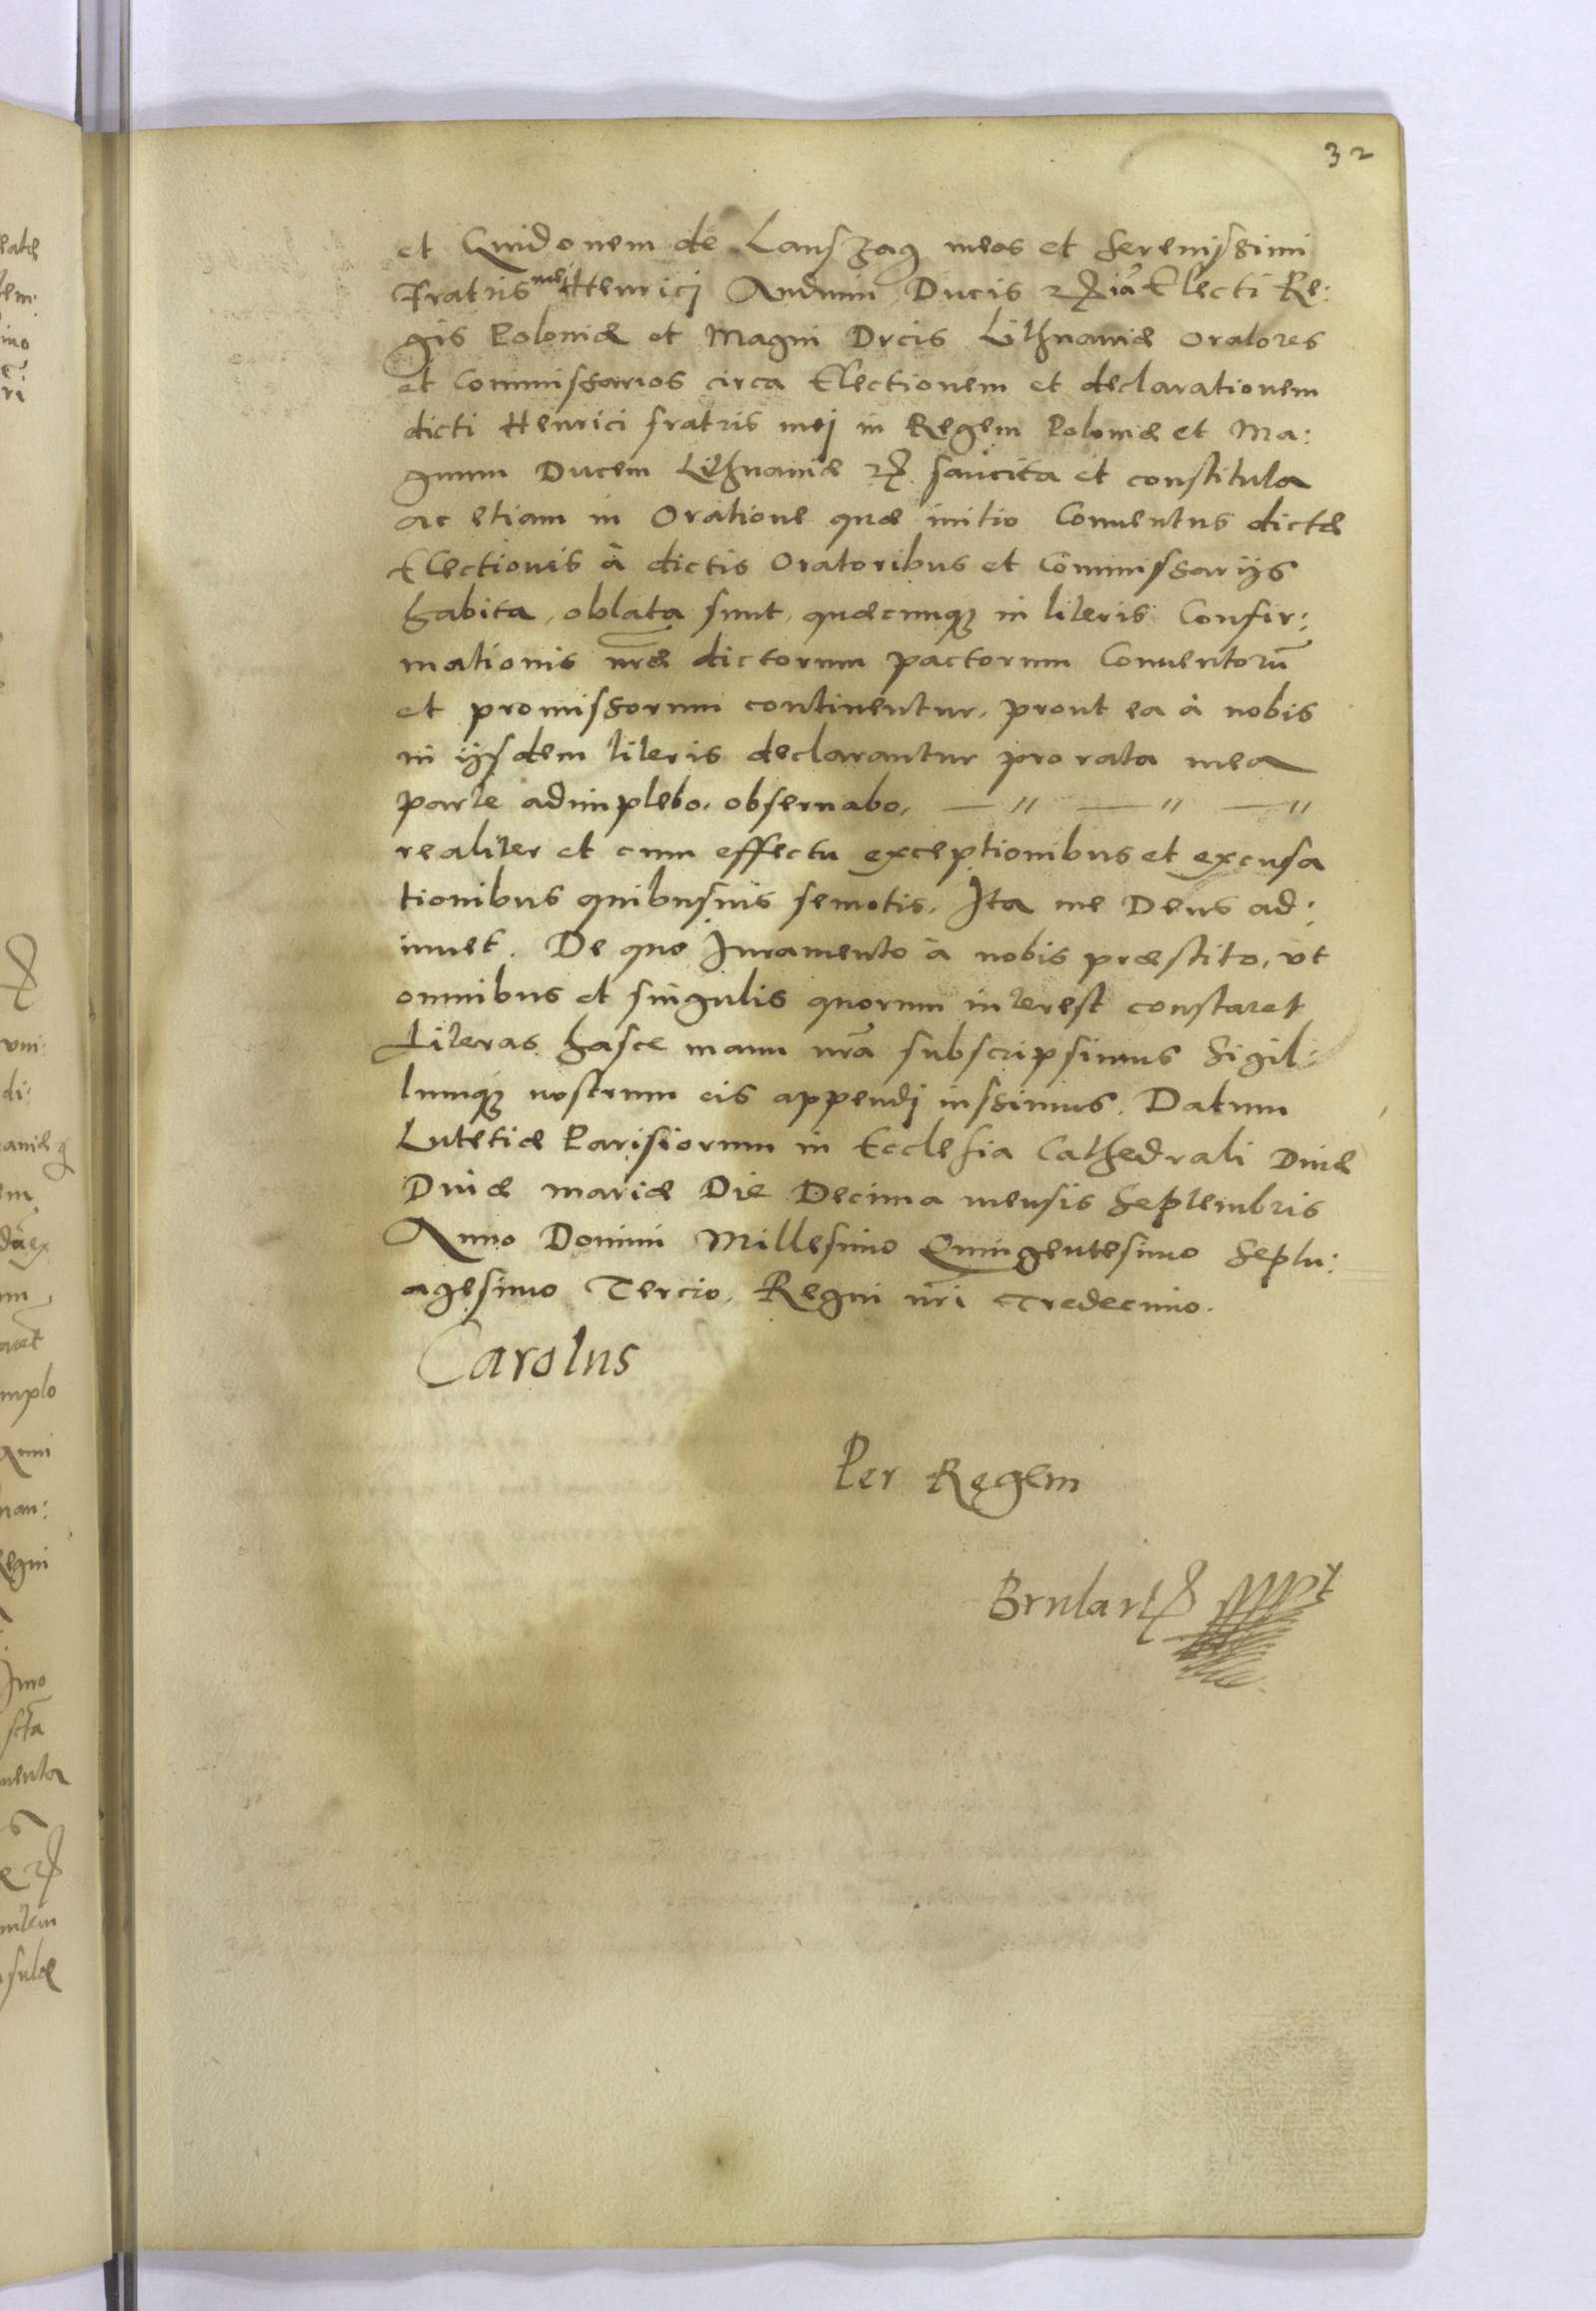 32
et Guidonem de Lanszag meos et Serenissimi
Fratris mei Henricj Andium Ducis etc iã Electi Re:
gis Poloniæ et Magni Dvcis Lithuaniæ Oratores
et Commissarios circa Electionem et declarationem
dicti Henrici fratris mej in Regem Poloniæ et Ma:
gnum Ducem Lithuaniæ etc. sancita et constituta
ac etiam in Oratione quæ initio Conuentus dictæ
Electionis à dictis Oratoribus et Commissarijs
habita, oblata sunt, quæcunq; in literis Confir:
mationis nr̃æ dictorum pactorum Conuentorũ
et promissorum continentur, prout ea à nobis
in ijsdem literis declarantur pro rata mea
parte adimplebo, obseruabo, — " — " — "
realiter et cum effectu exceptionibus et excusa
tionibus quibusuis semotis, Ita me Deus ad:
iuuet. De quo Juramento à nobis præstito, vt
omnibus et singulis quorum interest constaret
Literas hasce manu nr̃a subscripsimus Sigil:
lumq; nostrum eis appendj iussimus. Datum
Lutetiæ Parisiorum in Ecclesia Cathedrali Diuæ
Diuæ mariæ Die Decima mensis Septembris
Anno Domini Millesimo Quingentesimo Septu:
agesimo Tercio, Regni nr̃i Tredecimo.
Carolus
Per Regem
Brulart